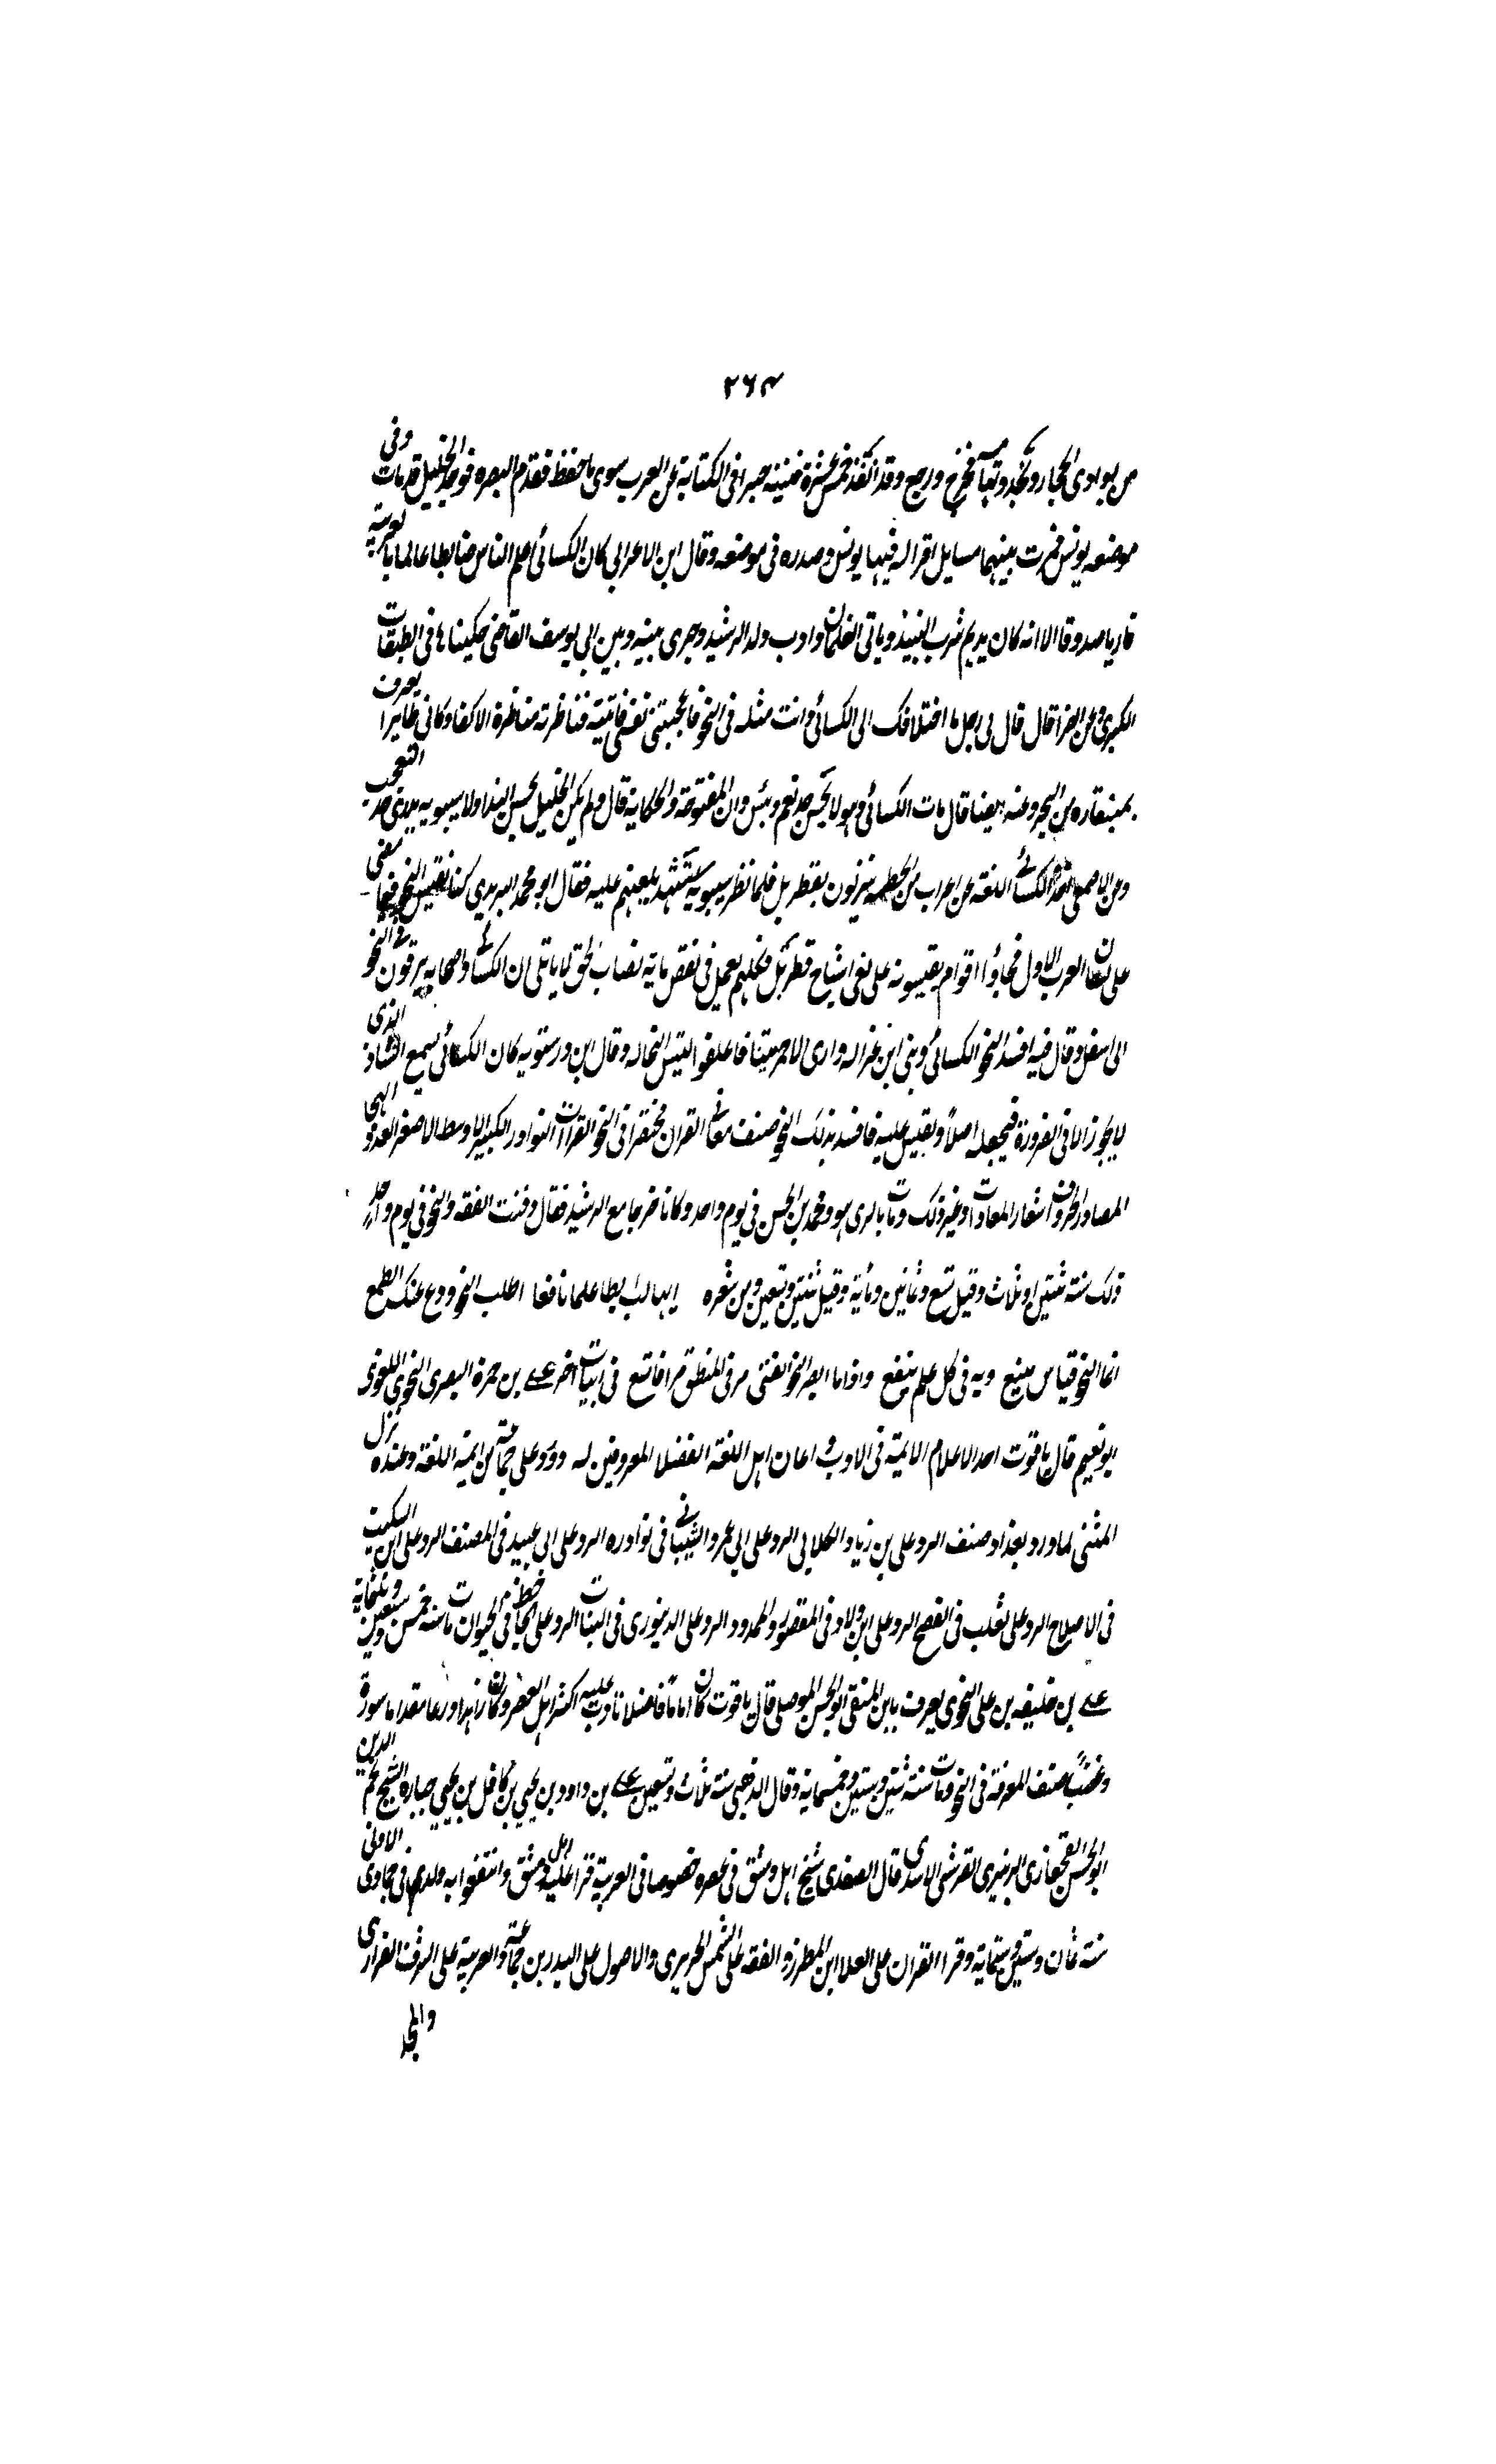 ٢٦٤
من بوادى الحجاز ونجد وتهامة فخرج ورجع وقد انفذ خمس عشرة قنينة حبرا فى الكتابة عن العرب سوى ما حفظ فقدم البصره فوجد الخليل قد مات وفى
موضعه يونس فجرت بينهما مسايل اقر له فيها يونس وصدره فى موضعه وقال ابن الاعرابي كان الكسائى اعلم الناس ضابطا عالما بالعربية
قاريا صدوقا الا انه كان يديم شرب النبيذ وياتى الغلمان وادب ولد الرشيد وجرى بينه وبين ابي يوسف القاضى حكيناها فى الطبقات
الكبرى وعن الفرا قال قال لى رجل ما اختلافك الى الكسائى وانت مثله فى النحو فاعجبتنى نفسى فاتيته فناظرته مناظرة الاكفا وكانى طايرا يغرف
بمنقاره من البحر وعنه ايضا قال مات الكسائى وهو لا يحسن حد نعم وبئس وان المفتوحة والحكاية قال ولم يكن الخليل يحسن الندا ولا سيبويه يدرى حد التعجب
وعن الاصمعى اخذ الكسائى اللغة عن اعراب من الحطمه ينزلون بقطربل فلما ناظر سيبويه استشهد بلغتهم عليه فقال ابو محمد اليزيدي كنا نقيس النحو فيما مضى
على لسان العرب الاول فجاؤا اقوام يقيسونه على لغى اشياخ قطربل فكلهم يعمل فى نقض مابه نصاب الحق لا ياتلى ان الكسائى واصحابه يرقون فى النحو
الى اسفل وقال فيه افسد النحو الكسائى وثنى ابن غزاله وارى الاحمر تيسا فاعلفوا التيس النخاله وقال ابن درستويه كان الكسائى يسمع الشاذ الذى
لا يجوز الا فى الضرورة فيجعله اصلاً ويقيس عليه فافسد بذلك النحو صنف معانى القران مختصرا فى النحو القراآت النوادر الكبير الاوسط الاصغر العدد الهجا
المصادر الحروف اشعار المعاياة وغير ذلك ومات بالرى هو ومحمد بن الحسن فى يوم واحد وكانا خرجا مع الرشيد فقال دفنت الفقه والنحو فى يوم واحد
ذلك سنة ثنتين او ثلاث وقيل تسع وثمانين ومأية وقيل ثنتين وتسعين ومن شعره ايها الطالب علما نافعا اطلب النحو ودع عنك الطمع
انما النحو قياس يتبع وبه فى كل علم ينتفع واذا ما ابصر النحو الفتى مر فى المنطق مرا فاتسع فى ابيات اخر على بن حمزة البصرى النحوى اللغوى
ابو نعيم قال ياقوت احد الاعلام الايمة فى الادب واعيان اهل اللغة الفضلا المعروفين له ردود على جماعة من ايمة اللغة وعنده نزل
المتنبى لما ورد بغداد صنف الرد على بن زياد الكلابي الرد على ابي عمرو الشيبانى فى نوادره الرد على ابي عبيد فى المصنف الرد على ابن السكيت
فى الاصلاح الرد على ثعلب فى الفصيح الرد على ابن ولاد فى المقصور والممدود الرد على الدينورى فى النبات الرد على الجاحظ فى الحيوان مات سنة خمس وسبعين وثلثماية
على بن خليفه بن على النحوى يعرف بابن المنقى ابو الحسن الموصلى قال ياقوت كان اماما فاضلا تادب عليه اكثر اهل العصر وكان زاهدا ورعا مقداما سورة
وغضباً صنف المعرفة فى النحو ومات سنة ثنتين وستين وخمسماية وقال الذهبى سنة ثلاث وتسعين على بن داود بن يحيى بن كامل بن يحيى جباره الشيخ نجم الدين
ابو الحسن القحفازى الزبيرى القرشى الاسدى قال الصفدى شيخ اهل دمشق فى عصره خصوصا فى العربية قرا عليه اهل دمشق وانتفعوا به ولد فى جمادى الاولى
سنة ثمان وستين وستماية وقرا القران على العلا ابن المطرز والفقه على الشمس الحريرى والاصول على البدر بن جماعة والعربية على الشرف الفزارى
والمجد